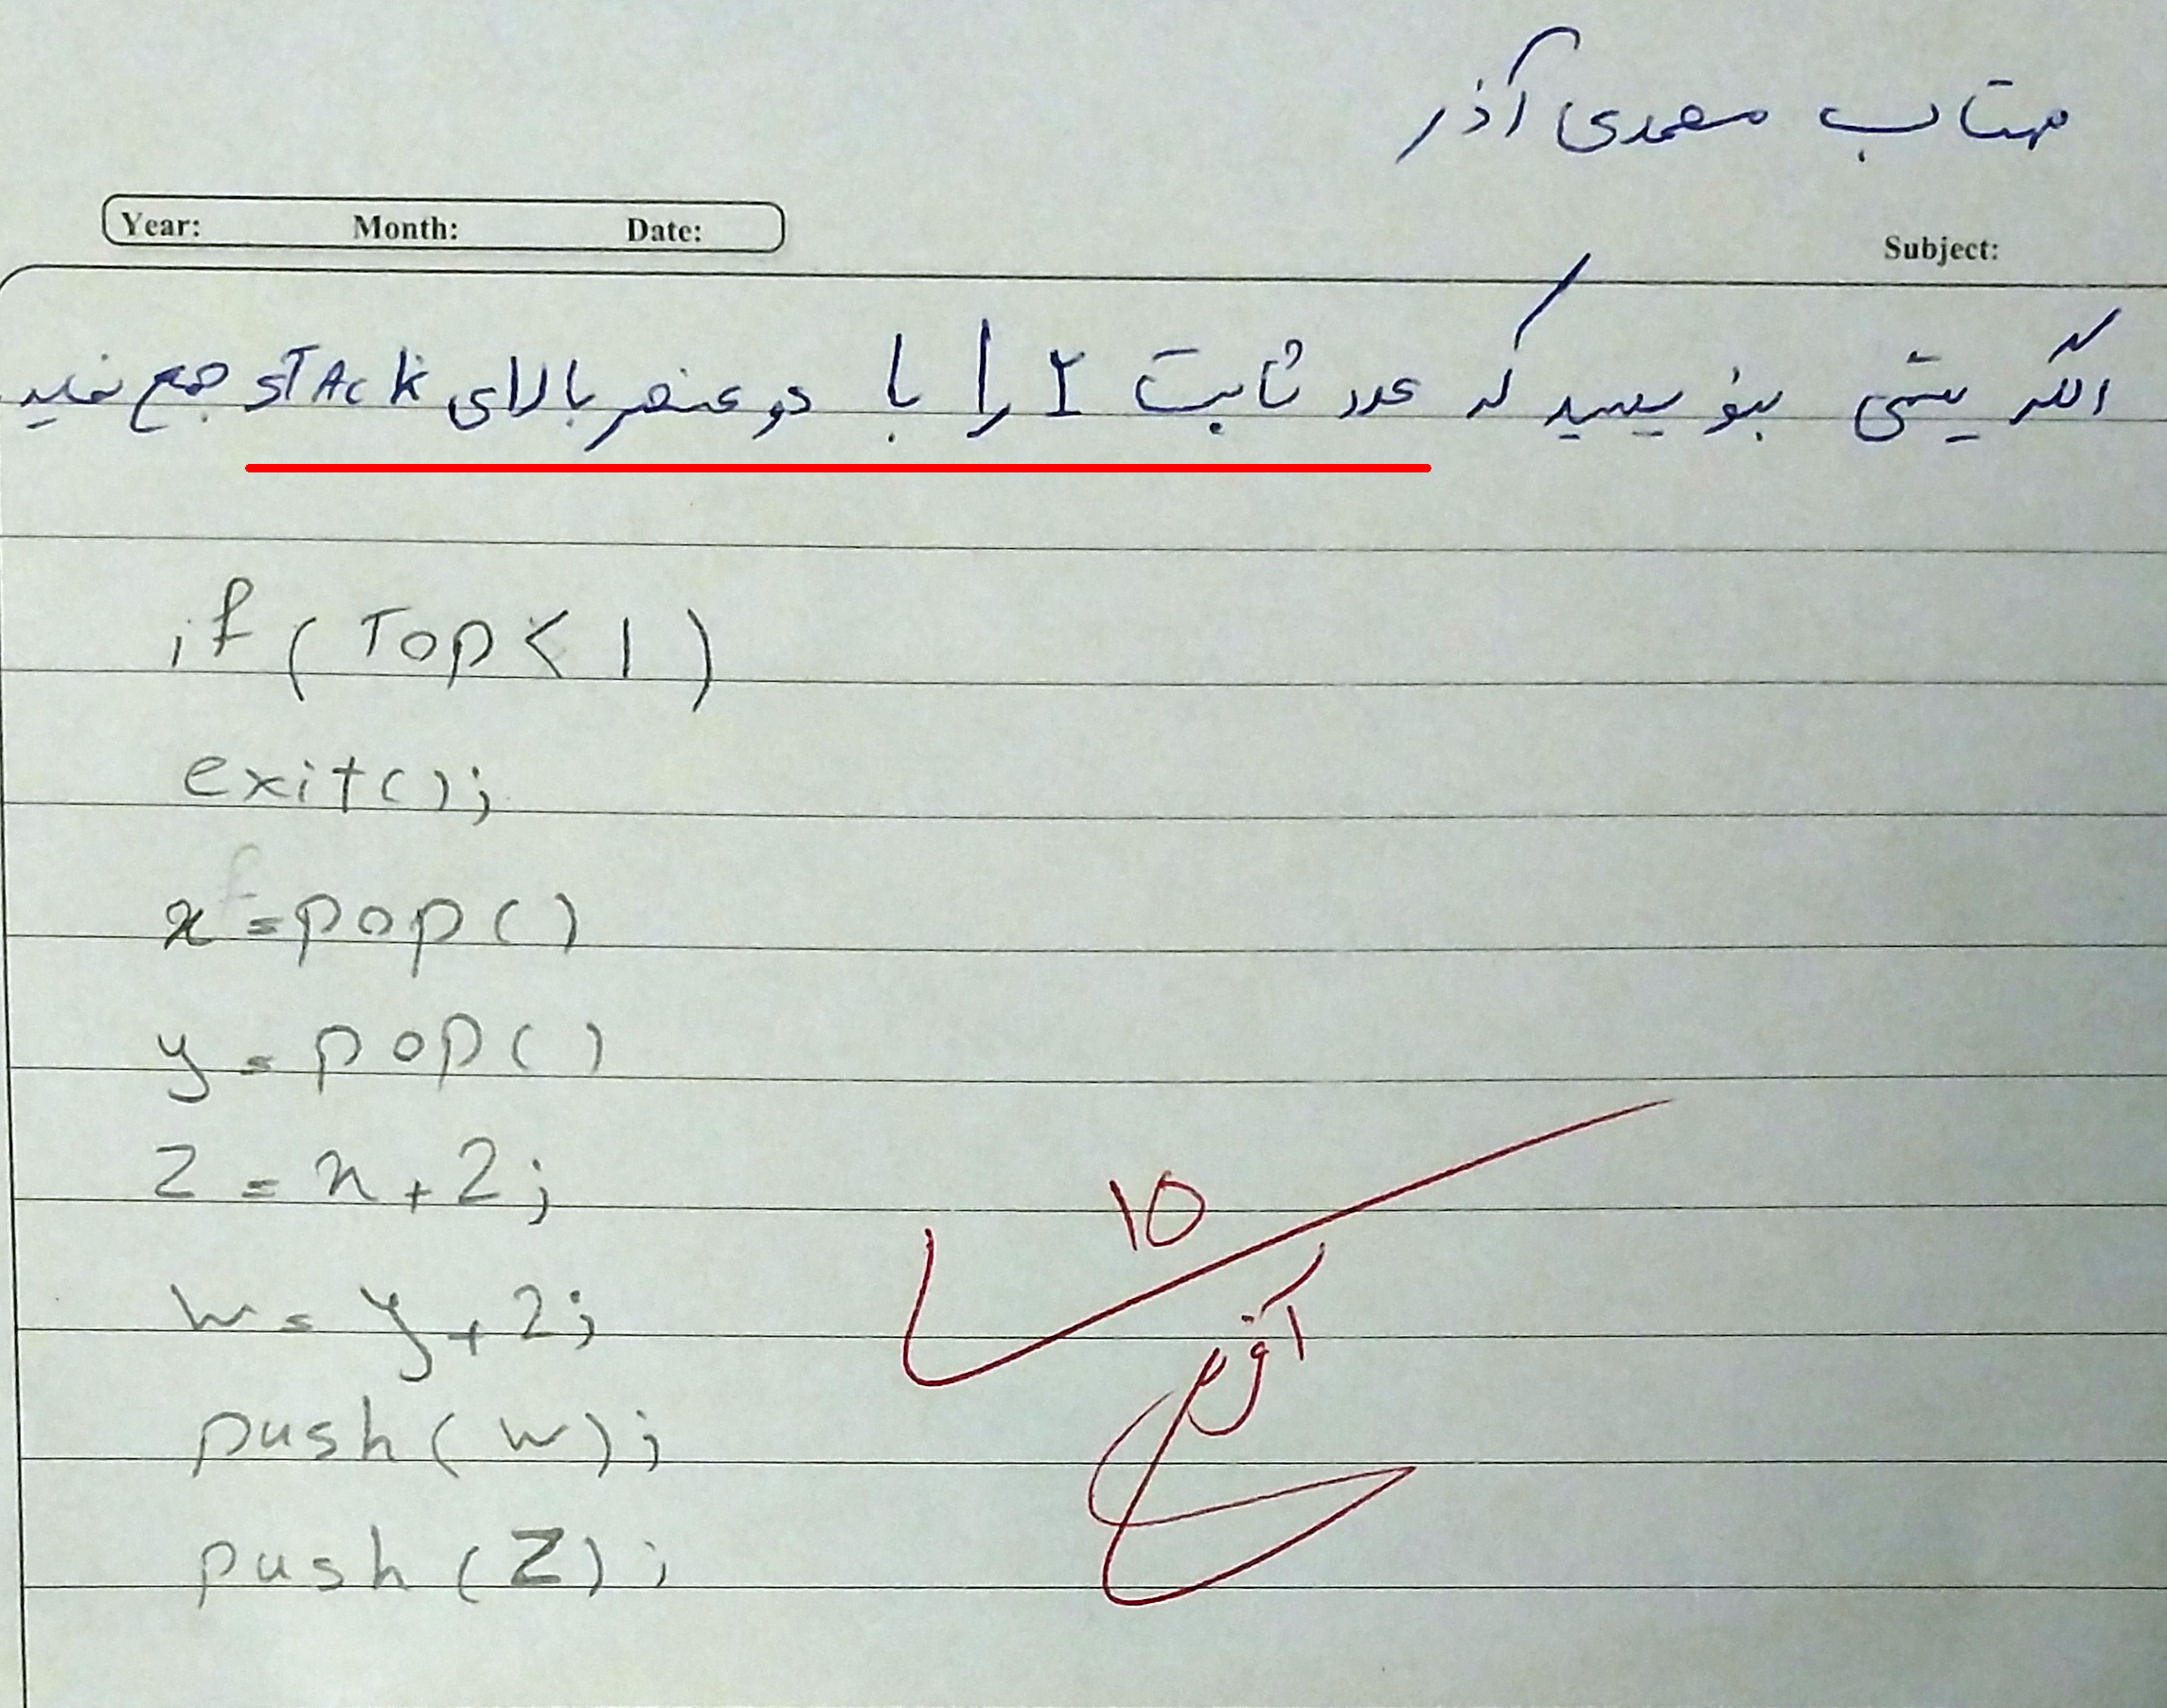 مهتاب محمدی آذر
Year: Month: Date:
Subject:
الگریتمی بنویسید که عدد ثابت ۲ را با دو عنصر بالای stAck جمع نماید
if ( Top < 1 )
exit();
x = pop ()
y = pop ()
z = x + 2;
w = y + 2;
push ( w ) ;
push ( Z ) ;
۱۵
آفرین